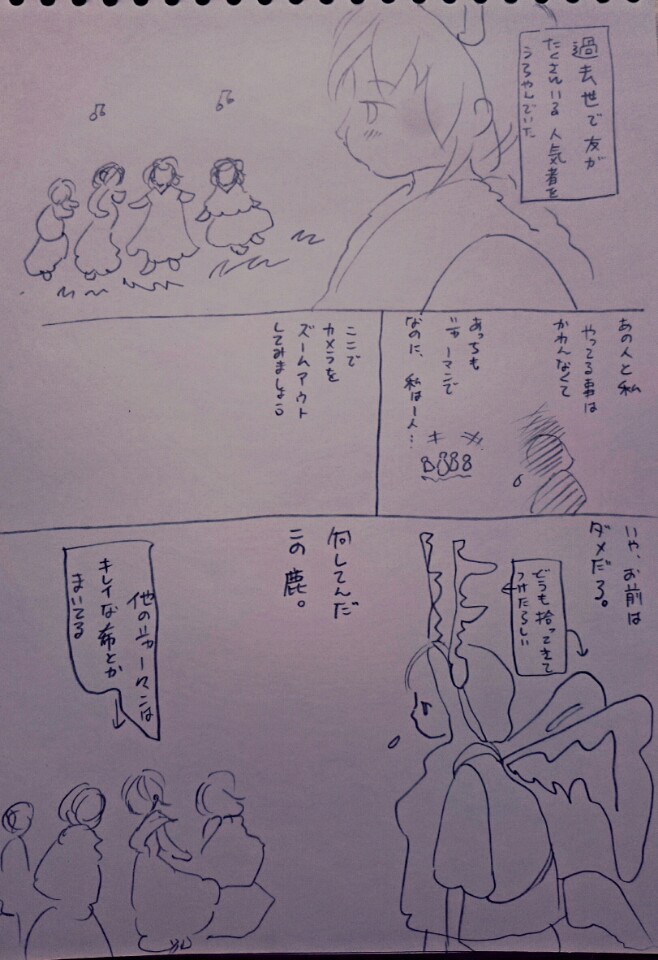 過去世で友が
たくさんいる人気者を
うらやんでいた
あの人と私
やってる事は
かわんなくて
あっちも
シャーマンで
なのに、私は一人…
キ
ここで
カメラを
ズームアウト
してみましょう。
いや、お前は
ダメだろ。
どうも拾ってきて
つけたらしい
何してんだ
この鹿。
他のシャーマンは
キレイな布とか
まいてる